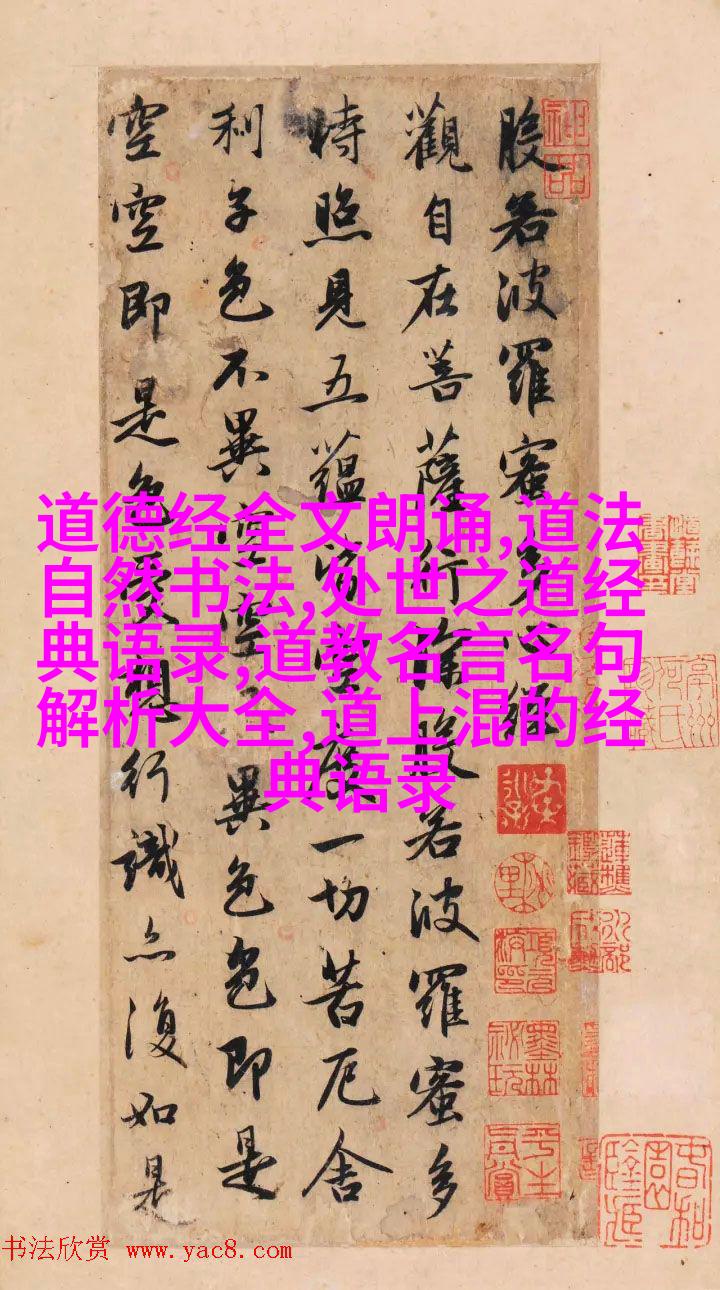 般若波羅蜜多心經
觀自在菩薩行深般若波羅蜜多
時照見五蘊皆空度一切苦厄舍
利子色不異空空不異色色即是
空空即是色受想行識亦復如是
神品
墨林秘玩
道德经全文朗诵,道法
自然书法,处世之道经
典语录,道教名言名句
解析大全,道上混的经
典语录
书法欣赏 www.yac8.com